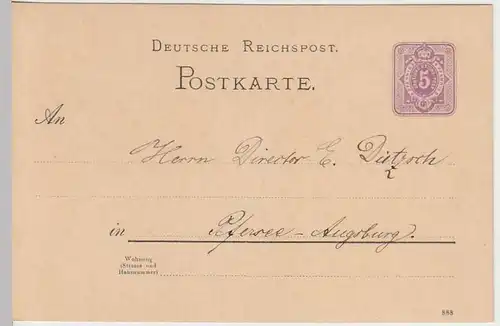 DEUTSCHE REICHSPOST.
POSTKARTE.
5
An
Herrn Director E. Dietzsch
in Pfersee-Augsburg.
Wohnung
(Strasse und
Hausnummer)
888